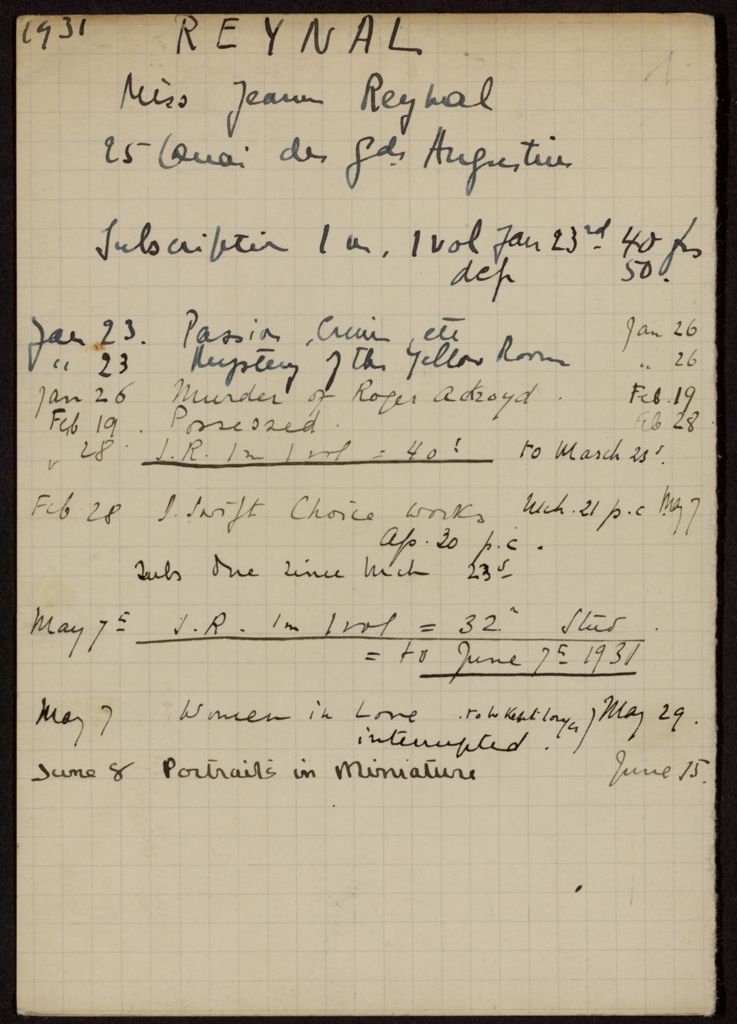 1931 REYNAL
Miss Jeanne Reynal
25 Quai des Gds Augustins
Subscription 1 m. 1 vol Jan 23rd 40 frs
dep 50.
Jan 23. Passion, Crime, etc Jan 26
" 23 Mystery of the Yellow Room " 26
Jan 26 Murder of Roger Ackroyd. Feb. 19
Feb 19. Possessed. Feb 28
" 28 S.R. 1m 1 vol = 40f to March 23d.
Feb 28 J. Swift Choice works Mch. 21 p.c May 7
Ap. 20 p.c.
Subs due since Mch 23d
May 7th S.R. 1m 1 vol = 32.- Stud.
= to June 7th 1931
May 7 Women in Love May 29.
interrupted.
June 8 Portraits in Miniature June 15.